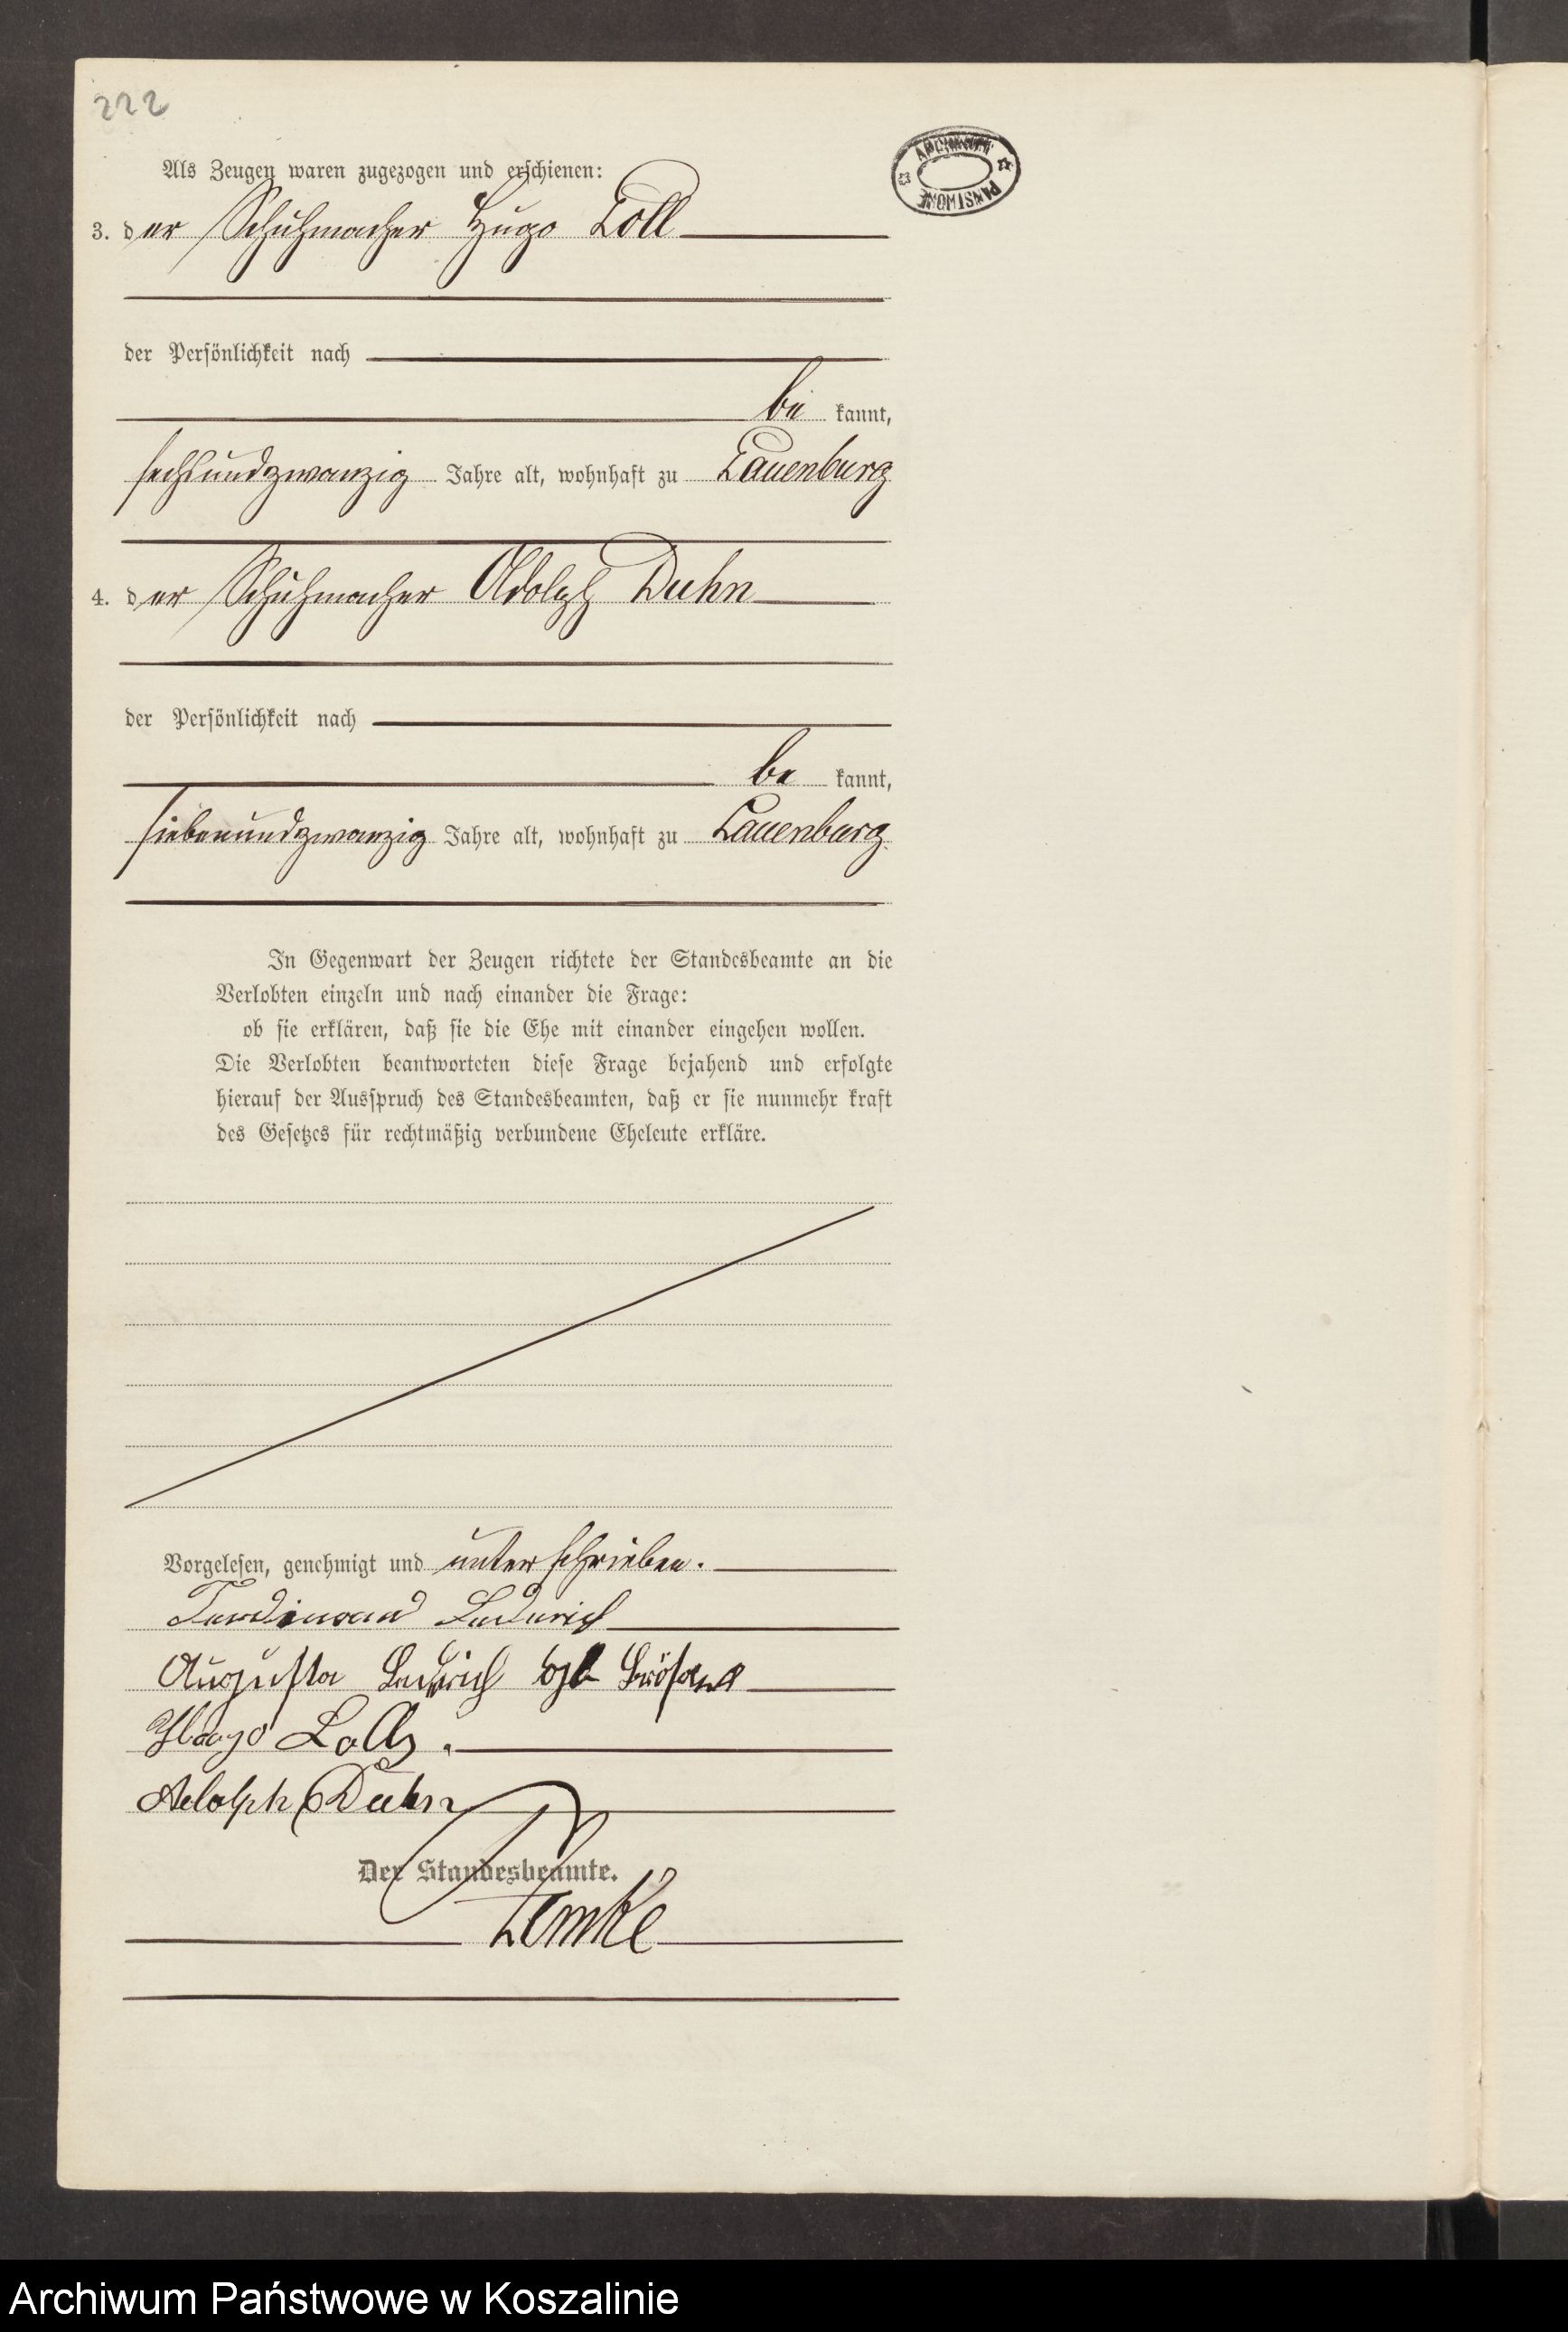 222
ARCHIWUM PAŃSTWOWE
Als Zeugen waren zugezogen und erschienen:
3. der Schuhmacher Hugo Loll
der Persönlichkeit nach
be kannt,
sechsundzwanzig Jahre alt, wohnhaft zu Lauenburg
4. der Schuhmacher Adolph Duhn
der Persönlichkeit nach
be kannt,
siebenundzwanzig Jahre alt, wohnhaft zu Lauenburg.
In Gegenwart der Zeugen richtete der Standesbeamte an die
Verlobten einzeln und nach einander die Frage:
ob sie erklären, daß sie die Ehe mit einander eingehen wollen.
Die Verlobten beantworteten diese Frage bejahend und erfolgte
hierauf der Ausspruch des Standesbeamten, daß er sie nunmehr kraft
des Gesetzes für rechtmäßig verbundene Eheleute erkläre.
Vorgelesen, genehmigt und unterschrieben.
Ferdinand
Augusta
Hugo Loll.
Adolph Duhn
Der Standesbeamte.
Lemke
Archiwum Państwowe w Koszalinie